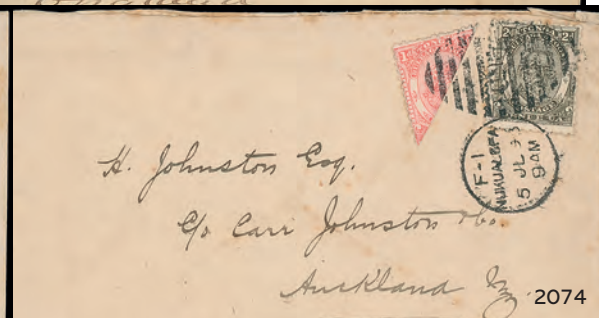 1d
2d 2d
F-1
NUKUALOFA
5 JL 93
9 AM
H. Johnston Esq.
C/o Carr Johnston & Co.
Auckland NZ.
2074